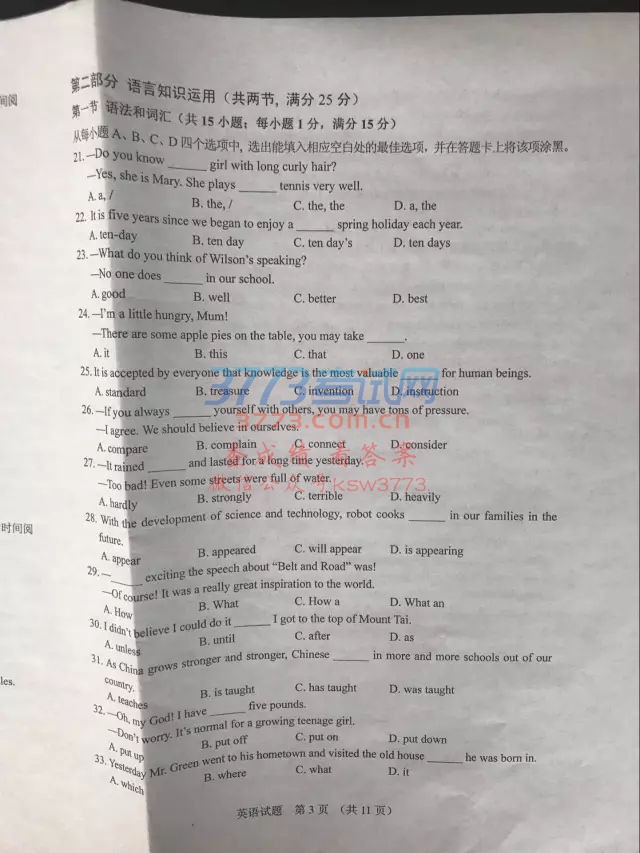 间阅
第二部分 语言知识运用（共两节, 满分 25 分）
第一节 语法和词汇（共 15 小题；每小题 1 分，满分 15 分）
从每小题 A、B、C、D 四个选项中, 选出能填入相应空白处的最佳选项，并在答题卡上将该项涂黑。
21. —Do you know ______ girl with long curly hair?
—Yes, she is Mary. She plays ______ tennis very well.
A. a, / B. the, / C. the, the D. a, the
22. It is five years since we began to enjoy a ______ spring holiday each year.
A. ten-day B. ten day C. ten day's D. ten days
23. —What do you think of Wilson's speaking?
—No one does ______ in our school.
A. good B. well C. better D. best
24. —I'm a little hungry, Mum!
—There are some apple pies on the table, you may take ______.
A. it B. this C. that D. one
25. It is accepted by everyone that knowledge is the most valuable ______ for human beings.
A. standard B. treasure C. invention D. instruction
26. —If you always ______ yourself with others, you may have tons of pressure.
—I agree. We should believe in ourselves.
A. compare B. complain C. connect D. consider
27. —It rained ______ and lasted for a long time yesterday.
—Too bad! Even some streets were full of water.
A. hardly B. strongly C. terrible D. heavily
时间阅
28. With the development of science and technology, robot cooks ______ in our families in the
future.
A. appear B. appeared C. will appear D. is appearing
29. —______ exciting the speech about “Belt and Road” was!
—Of course! It was a really great inspiration to the world.
A. How B. What C. How a D. What an
30. I didn't believe I could do it ______ I got to the top of Mount Tai.
A. unless B. until C. after D. as
31. As China grows stronger and stronger, Chinese ______ in more and more schools out of our
country.
les.
A. teaches B. is taught C. has taught D. was taught
32. —Oh, my God! I have ______ five pounds.
—Don't worry. It's normal for a growing teenage girl.
A. put up B. put off C. put on D. put down
33. Yesterday Mr. Green went to his hometown and visited the old house ______ he was born in.
A. which B. where C. what D. it
英语试题 第 3 页 （共 11 页）
3773考试网
3773.com.cn
查成绩 看答案
微信公众号ksw3773